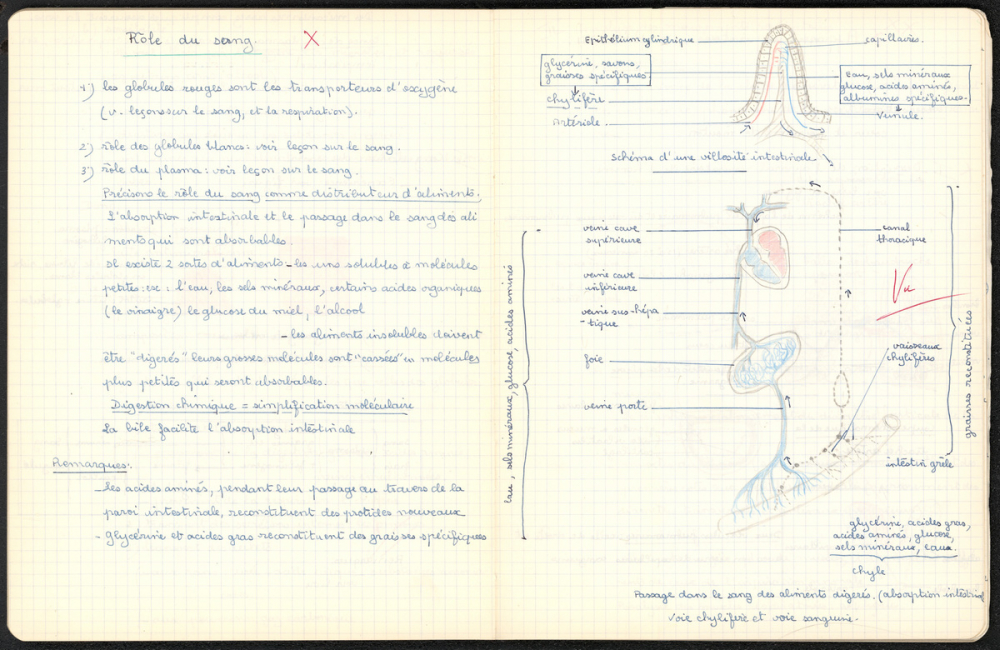 Rôle du sang.
1°) les globules rouges sont les transporteurs d'oxygène
(v. leçons sur le sang, et la respiration).
2°) rôle des globules blancs: voir leçon sur le sang.
3°) rôle du plasma: voir leçon sur le sang.
Précisons le rôle du sang comme distributeur d'aliments.
L'absorption intestinale et le passage dans le sang des ali
ments qui sont absorbables.
Il existe 2 sortes d'aliments - les uns solubles à molécules
petites: ex: l'eau, les sels minéraux, certains acides organiques
(le vinaigre) le glucose du miel, l'alcool
- les aliments insolubles doivent
être "digerés" leurs grosses molécules sont "cassées" en molécules
plus petites qui seront absorbables.
Digestion chimique = simplification moléculaire
La bile facilite l'absorption intestinale
Remarques:
- les acides aminés, pendant leur passage au travers de la
paroi intestinale, reconstituent des protides nouveaux
- glycérine et acides gras reconstituent des graisses spécifiques
Epithélium cylindrique
capillaires.
glycérine, savons,
graisses spécifiques.
chylifère
Artériole.
eau, sels minéraux
glucose, acides aminés,
albumines spécifiques.
Veinule.
Schéma d'une villosité intestinale.
veine cave
supérieure
veine cave
inférieure
veine sus-hépa
-tique
foie
veine porte
eau, sels minéraux, glucose, acides aminés
canal
thoracique
Vu
vaisseaux
chylifères
graisses reconstituées
intestin grêle
glycérine, acides gras,
acides aminés, glucose,
sels minéraux, eau.
chyle
Passage dans le sang des aliments digerés. (absorption intestinal
Voie chylifère et voie sanguine.